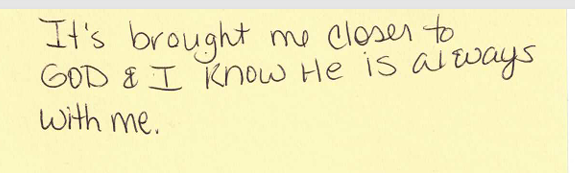 It's brought me closer to
GOD & I know He is always
with me.